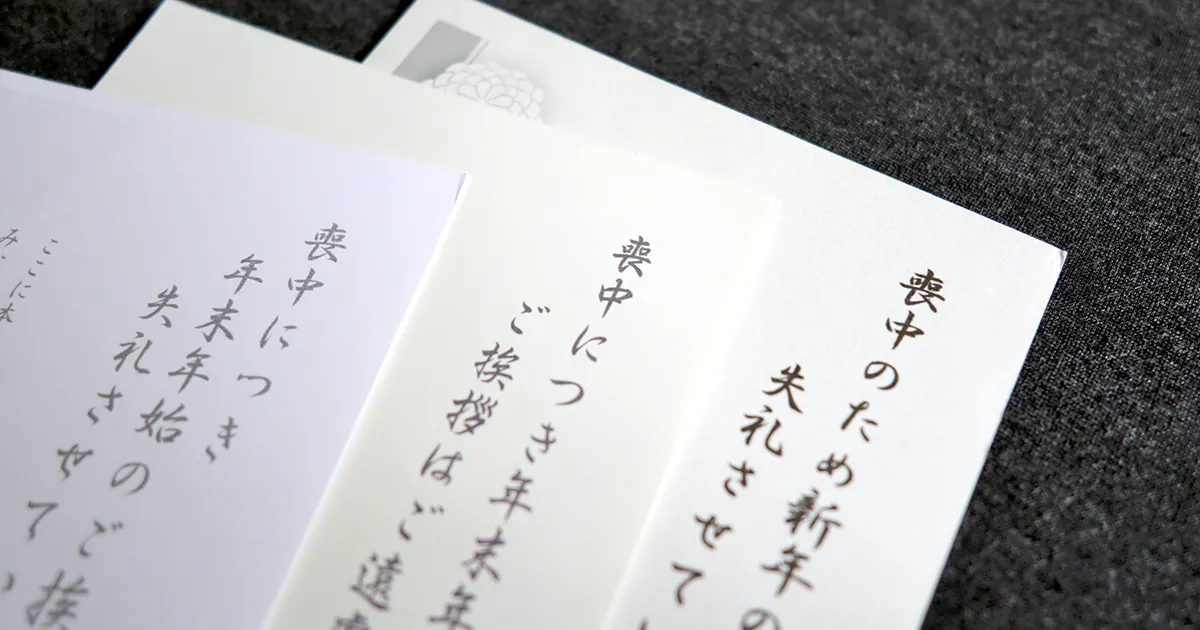 喪中のため新年の
失礼させてい
喪中につき年末年
ご挨拶はご遠慮
喪中につき
年末年始のご挨
失礼させてい
ここに本
み